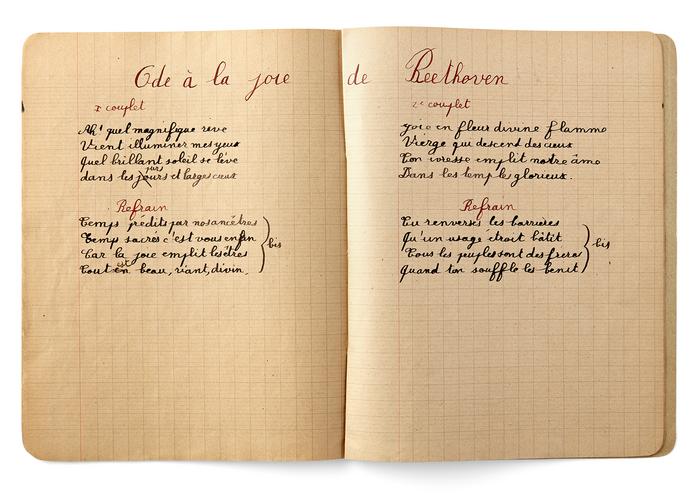 Ode à la joie de Beethoven
1e couplet
Ah! quel magnifique reve
Vient illuminer mes yeux
Quel brillant soleil se lève
dans les purs et larges cieux
Refrain
Temps prédits par nos ancêtres
Temps sacrés c'est vous enfin
Car la joie emplit les êtres
Tout est beau, riant, divin.
bis
2e couplet
joie en fleur divine flamme
Vierge qui descend des cieux
Ton ivresse emplit notre âme
Dans les temples glorieux.
Refrain
Tu renverses les barrières
Qu'un usage étroit bâtit
Tous les peuples sont des freres
Quand ton souffle les benit
bis